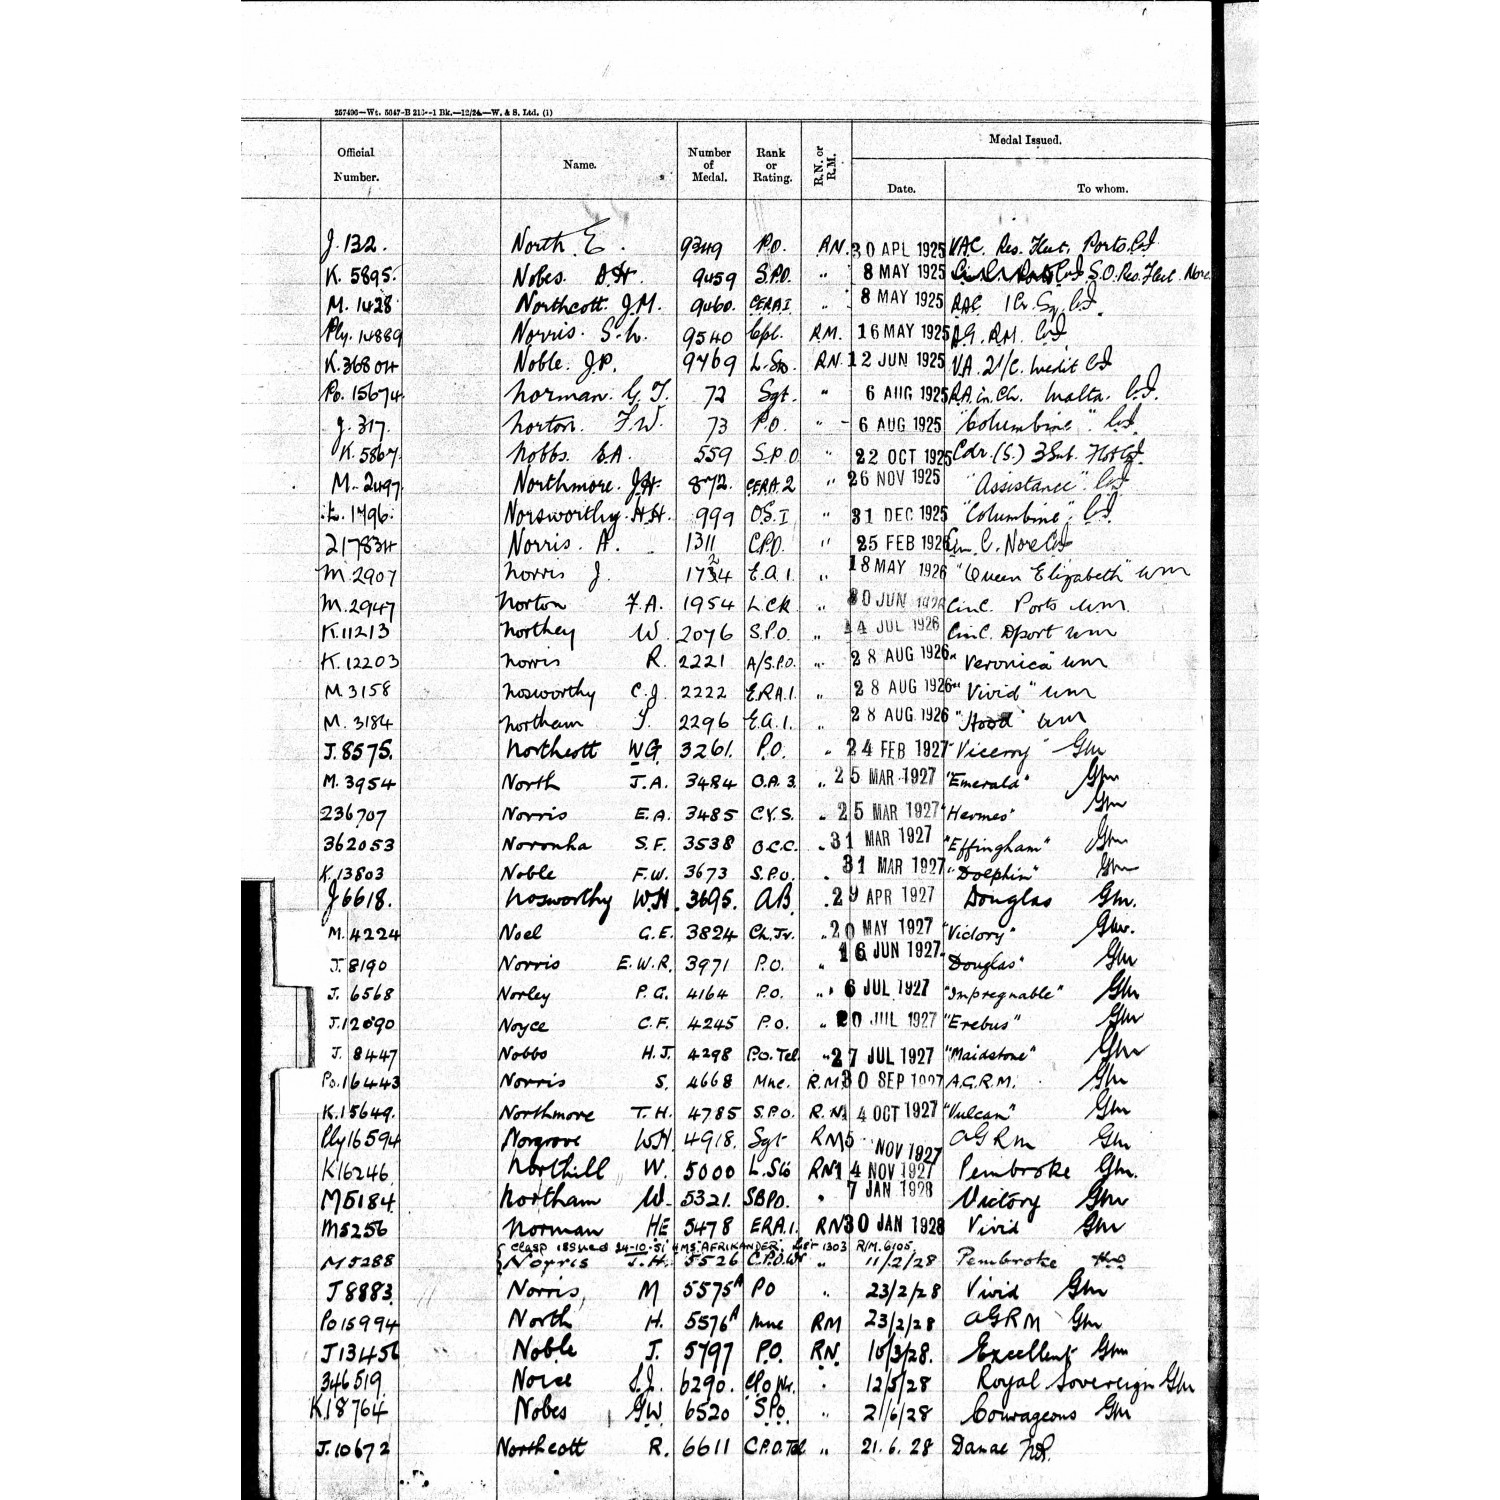 257496—Wt. 5647-B 216--1 Bk.—12/24.—W. & S. Ltd. (1)
Official Number. Name. Number of Medal. Rank or Rating. R.N. or R.M. Medal Issued.
Date. To whom.
J. 132. North E. 9349 P.O. RN. 30 APL 1925 VAC. Res. Fleet. Ports.
K. 5895. Nobes. 9459 S.P.O. " 8 MAY 1925 S.O. Res. Fleet. Nore
M. 1428 Northcott. J.M. 9460. CERA I " 8 MAY 1925 1 Cr. Sq.
Ply. 14889 Norris. 9540 Cpl. RM. 16 MAY 1925 A.G. RM.
K. 36804 Noble. J.P. 9769 L.Sto. RN. 12 JUN 1925 V.A. 2 i/c. Medit
Po. 15674. Norman. G.T. 72 Sgt. " 6 AUG 1925 R.A. in Ch. Malta.
J. 317. Norton. F.W. 73 P.O. " 6 AUG 1925 "Columbine".
K. 5867. Nobbs. E.A. 559 S.P.O " 22 OCT 1925 Cdr. (S.) 3 Sub.
M. 2497. Northmore. J.H. 872. CERA.2 " 26 NOV 1925 "Assistance".
L. 1796. Norsworthy. H.H. 999 O.S. I " 31 DEC 1925 "Columbine".
217834 Norris. A. 1311 C.P.O. " 25 FEB 1926 C. Nore
M. 2907 Norris J. E.A.1. " 18 MAY 1926 "Queen Elizabeth" wm
M. 2947 Norton F.A. 1954 L.Ck. " 30 JUN 1926 CinC. Ports wm.
K. 11213 Northey W. 2076 S.P.O. " 14 JUL 1926 CinC. Dport wm
K. 12203 Norris R. 2221 A/S.P.O. " 28 AUG 1926 "Veronica" wm
M. 3158 Nosworthy C.J. 2222 E.R.A.1. " 28 AUG 1926 "Vivid" wm
M. 3184 Northam T. 2296 E.A.1. " 28 AUG 1926 "Hood" wm
J. 8575. Northcott WG. 3261. P.O. " 24 FEB 1927 "Viceroy" Gm
M. 3954 North J.A. 3484 O.A. 3. " 25 MAR 1927 "Emerald" Gm
236707 Norris E.A. 3485 C.Y.S. " 25 MAR 1927 "Hermes" Gm
362053 Noronha S.F. 3538 O.C.C. " 31 MAR 1927 "Effingham" Gm
K. 13803 Noble F.W. 3673 S.P.O. " 31 MAR 1927 "Dolphin" Gm
J6618. Nosworthy W.H. 3695. AB. " 29 APR 1927 Douglas Gm.
M. 4224 Noel G.E. 3824 Ch.Jr. " 20 MAY 1927 "Victory" Gm.
J. 8190 Norris E.W.R. 3971 P.O. " 16 JUN 1927 "Douglas" Gm
J. 6568 Norley P.G. 4164 P.O. " 6 JUL 1927 "Impregnable" Gm
J. 12090 Noyce C.F. 4245 P.O. " 20 JUL 1927 "Erebus" Gm
J. 8447 Nobbs H.J. 4298 P.O. Tel " 27 JUL 1927 "Maidstone" Gm
Po. 16443 Norris S. 4668 Mne. R.M. 30 SEP 1927 A.G.R.M. Gm
K. 15649. Northmore T.H. 4785 S.P.O. R.N. 14 OCT 1927 "Vulcan" Gm
Ply 16594 Norgrove WH. 4918. Sgt RM 5 NOV 1927 AGRM Gm
K16246 Northill W. 5000 L.Sto RN 14 NOV 1927 Pembroke Gm.
M5184 Northam W. 5321. SBPO. " 7 JAN 1928 Victory Gm
M5256 Norman HE 5478 ERA.1. RN 30 JAN 1928 Vivid Gm
Clasp issued 24-10-51 HMS AFRIKANDER. 1303 R/M.6105.
M5288 Norris J.H. 5526 C.P.O. Wr " 11/2/28 Pembroke
J8883. Norris, M 5575A PO " 23/2/28 Vivid Gm
Po 15994 North H. 5576A Mne RM 23/2/28 AGRM Gm
J13456 Noble J. 5797 P.O. RN. 10/3/28. Excellent Gm
346519. Noice S.J. 6290. CPO Wr. " 12/5/28 Royal Sovereign Gm
K18764 Nobes GW 6520 S.P.O. " 21/6/28 Courageous Gm
J. 10672 Northcott R. 6611 C.P.O. Tel " 21. 6. 28 Danae